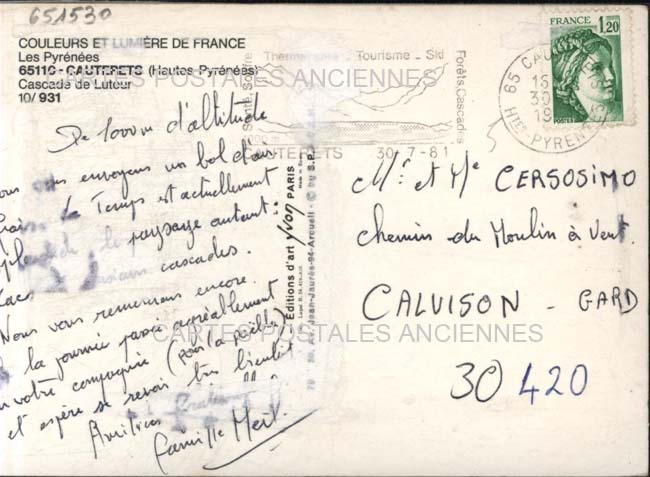 651530
COULEURS ET LUMIÈRE DE FRANCE
Les Pyrénées
65110 - CAUTERETS (Hautes-Pyrénées)
Cascade de Lutour
10/931
CARTES POSTALES ANCIENNES
Thermalisme - Tourisme - Ski
Forêts, Cascades
CAUTERETS 30-7-81
65 CAUTERETS
30
Htes PYRENEES
FRANCE
1,20
De 1000m d'altitude
vous envoyons un bol d'air
frais. Le Temps est actuellement
splendide le paysage autant
Lacs cascades.
Nous vous remercions encore
la journée passée agréablement
en votre compagnie (pour la paëlla)
et espère se revoir très bientôt
Amitiés
famille Meil
Éditions d'art Yvon PARIS
Jean-Jaurès-94-Arcueil - © by S.P.
Mr. et Me CERSOSIMO
chemin du Moulin à Vent.
CALVISON - GARD
30 420
CARTES POSTALES ANCIENNES